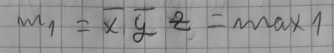 m₁ = x̅ y̅ z = max 1